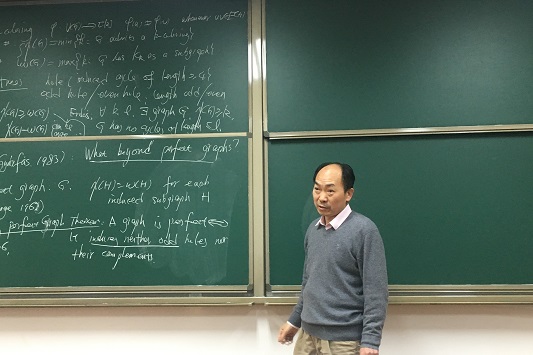 χ(G)=min{k: G admits a k-coloring}
ω(G)=max{k: G has K_k as a subgraph}
hole (induced cycle of length ≥4)
odd hole/even hole, length odd/even
χ(G)≥ω(G) Erdős, ∀ k, l, ∃ graph G χ(G)≥k,
G has no cycles of length ≤l,
1983): What beyond perfect graphs?
graph: G. χ(H)=ω(H) for each
induced subgraph H
Perfect Graph Theorem: A graph is perfect ⟺
it induces neither odd holes nor
their complements.